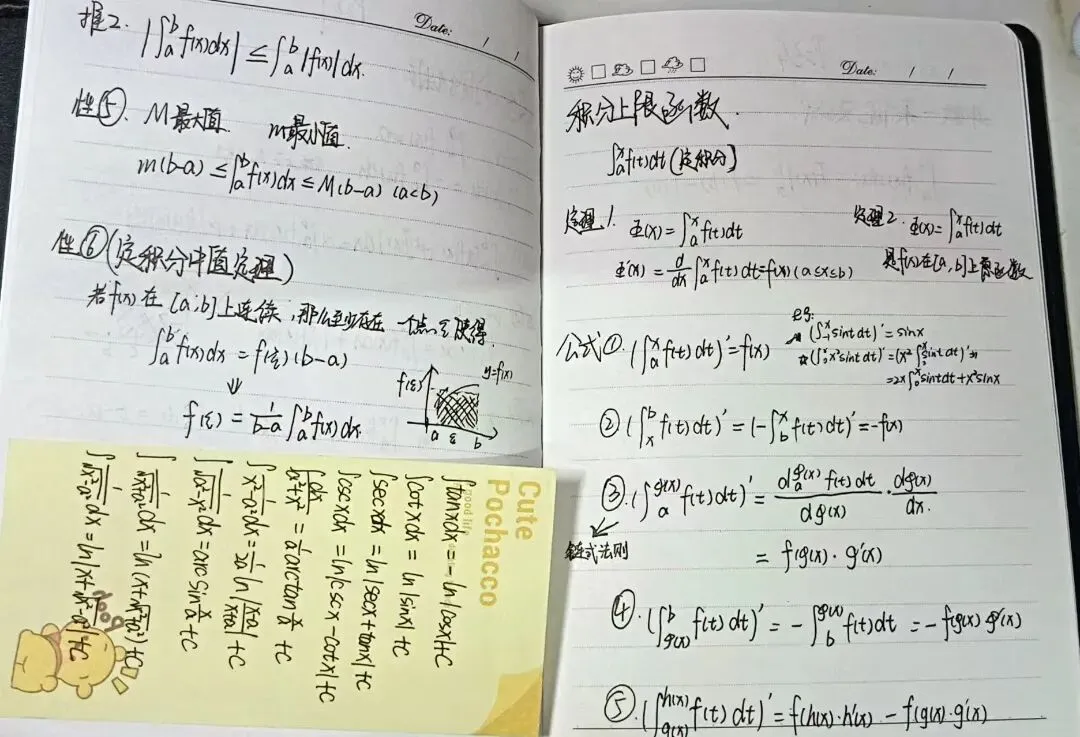 推2. |∫ₐᵇf(x)dx| ≤ ∫ₐᵇ|f(x)|dx.
Date: / /
性⑤. M最大值 m最小值.
m(b-a) ≤ ∫ₐᵇf(x)dx ≤ M(b-a) (a<b)
性⑥(定积分中值定理)
若f(x)在[a,b]上连续,那么至少存在一个点ξ使得.
∫ₐᵇf(x)dx = f(ξ)(b-a)
⇓
f(ξ) = 1/(b-a) ∫ₐᵇf(x)dx.
f(ξ) y=f(x)
a ξ b
Cute
Pochacco
good life
∫tanxdx = -ln|cosx|+C
∫cotxdx = ln|sinx|+C
∫secxdx = ln|secx+tanx|+C
∫cscxdx = ln|cscx-cotx|+C
∫dx/(a²+x²) = 1/a arctan x/a +C
∫1/(x²-a²)dx = 1/2a ln|
∫1/√(a²-x²)dx = arcsin x/a +C
∫1/√(x²+a²)dx = ln(x+√(x²+a²))+C
∫1/√(x²-a²)dx = ln|x+√(x²-a²)|+C
Date: / /
积分上限函数.
∫ₐˣf(t)dt(定积分]
定理1. Φ(x) = ∫ₐˣf(t)dt
Φ'(x) = d/dx ∫ₐˣf(t)dt=f(x)(a≤x≤b)
定理2. Φ(x) = ∫ₐˣf(t)dt
是f(x)在[a,b]上原函数
公式①.(∫ₐˣf(t)dt)'=f(x)
eg:
sintdt)'=sinx
x²sintdt)'=(x²∫₀ˣsintdt)'=
=2x∫₀ˣsintdt+x²sinx
②(∫ₓᵇf(t)dt)'=(-∫_b^x f(t)dt)'=-f(x)
③.(∫ₐ^g(x) f(t)dt)' = d∫ₐ^g(x) f(t)dt/dg(x) · dg(x)/dx.
链式法则
= f(g(x)·g'(x)
④.(∫_g(x)^b f(t)dt)' = -∫_b^g(x) f(t)dt = -f(g(x)g'(x)
⑤.(∫_g(x)^h(x) f(t)dt)' = f(h(x)·h'(x) - f(g(x)·g'(x)